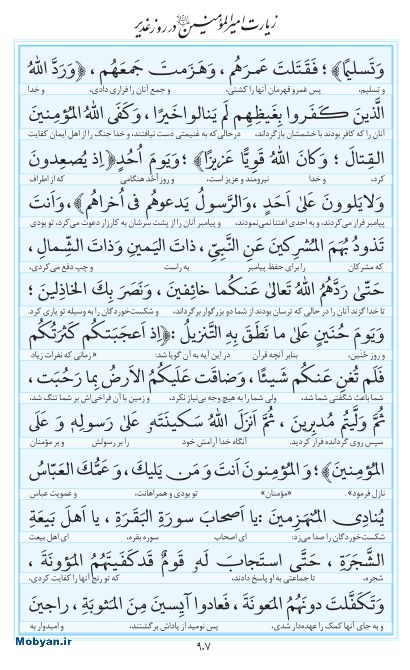 زیارت امیرالمؤمنین در روز غدیر
وَتَسلیمًا﴾؛ فَقَتَلتَ عَمرَهُم، وَهَزَمتَ جَمعَهُم، ﴿وَرَدَّ اللهُ
و تسلیم، پس عمرو قهرمان آنها را کشتی، و جمع آنان را فراری دادی، و خدا
الَّذینَ کَفَروا بِغَیظِهِم لَم یَنالوا خَیرًا، وَکَفَی اللهُ المُؤمِنینَ
آنان را که کافر بودند با خشمشان بازگرداند، درحالی‌که به غنیمتی دست نیافتند، و خدا جنگ را از اهل ایمان کفایت
القِتالَ؛ وَکانَ اللهُ قَویًّا عَزیزًا﴾؛ وَیَومَ اُحُدٍ ﴿اِذ یُصعِدونَ
کرد، و خدا نیرومند و عزیز است، و روز اُحُد هنگامی که از اطراف
وَلایَلوونَ عَلیٰ اَحَدٍ، وَالرَّسولُ یَدعوهُم فی اُخراهُم﴾، وَاَنتَ
پیامبر فرار می‌کردند، و به احدی اعتنا نمی‌نمودند، و پیامبر آنان را از پشت سرشان به کارزار دعوت می‌کرد، تو بودی
تَذودُ بُهَمَ المُشرِکینَ عَنِ النَّبِیِّ، ذاتَ الیَمینِ وَذاتَ الشِّمالِ،
که مشرکان را برای حفظ پیامبر به راست و چپ دفع می‌کردی،
حَتّیٰ رَدَّهُمُ اللهُ تَعالیٰ عَنکُما خائِفینَ، وَنَصَرَ بِکَ الخاذِلینَ؛
تا خدا گزند آنان را در حالی که ترسان بودند از شما دو بزرگوار برگرداند، و شکست‌خوردگان را به وسیله تو یاری کرد.
وَیَومَ حُنَینٍ عَلیٰ ما نَطَقَ بِهِ التَّنزیلُ: ﴿اِذ اَعجَبَتکُم کَثرَتُکُم
و روز حُنین، بنابر آنچه قرآن در این آیه به آن گویا شد: « زمانی که نفرات زیاد
فَلَم تُغنِ عَنکُم شَیئًا، وَضاقَت عَلَیکُمُ الاَرضُ بِما رَحُبَت،
شما باعث شگفتی شما شد، ولی شما را به هیچ وجه بی‌نیاز نکرد، و زمین با آن فراخی‌اش بر شما تنگ شد،
ثُمَّ وَلَّیتُم مُدبِرینَ، ثُمَّ اَنزَلَ اللهُ سَکینَتَهو عَلیٰ رَسولِه وَ عَلَی
سپس روی گردانده فرار کردید. آنگاه خدا آرامش خود را بر رسولش و بر مؤمنان
المُؤمِنینَ﴾؛ وَ المُؤمِنونَ اَنتَ وَ مَن یَلیکَ، وَ عَمُّکَ العَبّاسُ
نازل فرمود». «مؤمنان» تو بودی و همراهانت، و عمویت عباس
یُنادِی المُنهَزِمینَ: یا اَصحابَ سورَةِ البَقَرَةِ، یا اَهلَ بَیعَةِ
شکست‌خوردگان را صدا می‌زد: ای اصحاب سوره بقره، ای اهل بیعت
الشَّجَرَةِ، حَتَّی استَجابَ لَهو قَومٌ قَد کَفَیتَهُمُ المَؤونَةَ،
شجره، تا جماعتی به او پاسخ دادند، که تو رنج آنها را کفایت کردی،
وَتَکَفَّلتَ دونَهُمُ المَعونَةَ، فَعادوا آیِسینَ مِنَ المَثوبَةِ، راجینَ
و به جای آنها کمک را عهده‌دار شدی، پس نومید از پاداش برگشتند، و امیدوار به
۹۰۷
Mobyan.ir